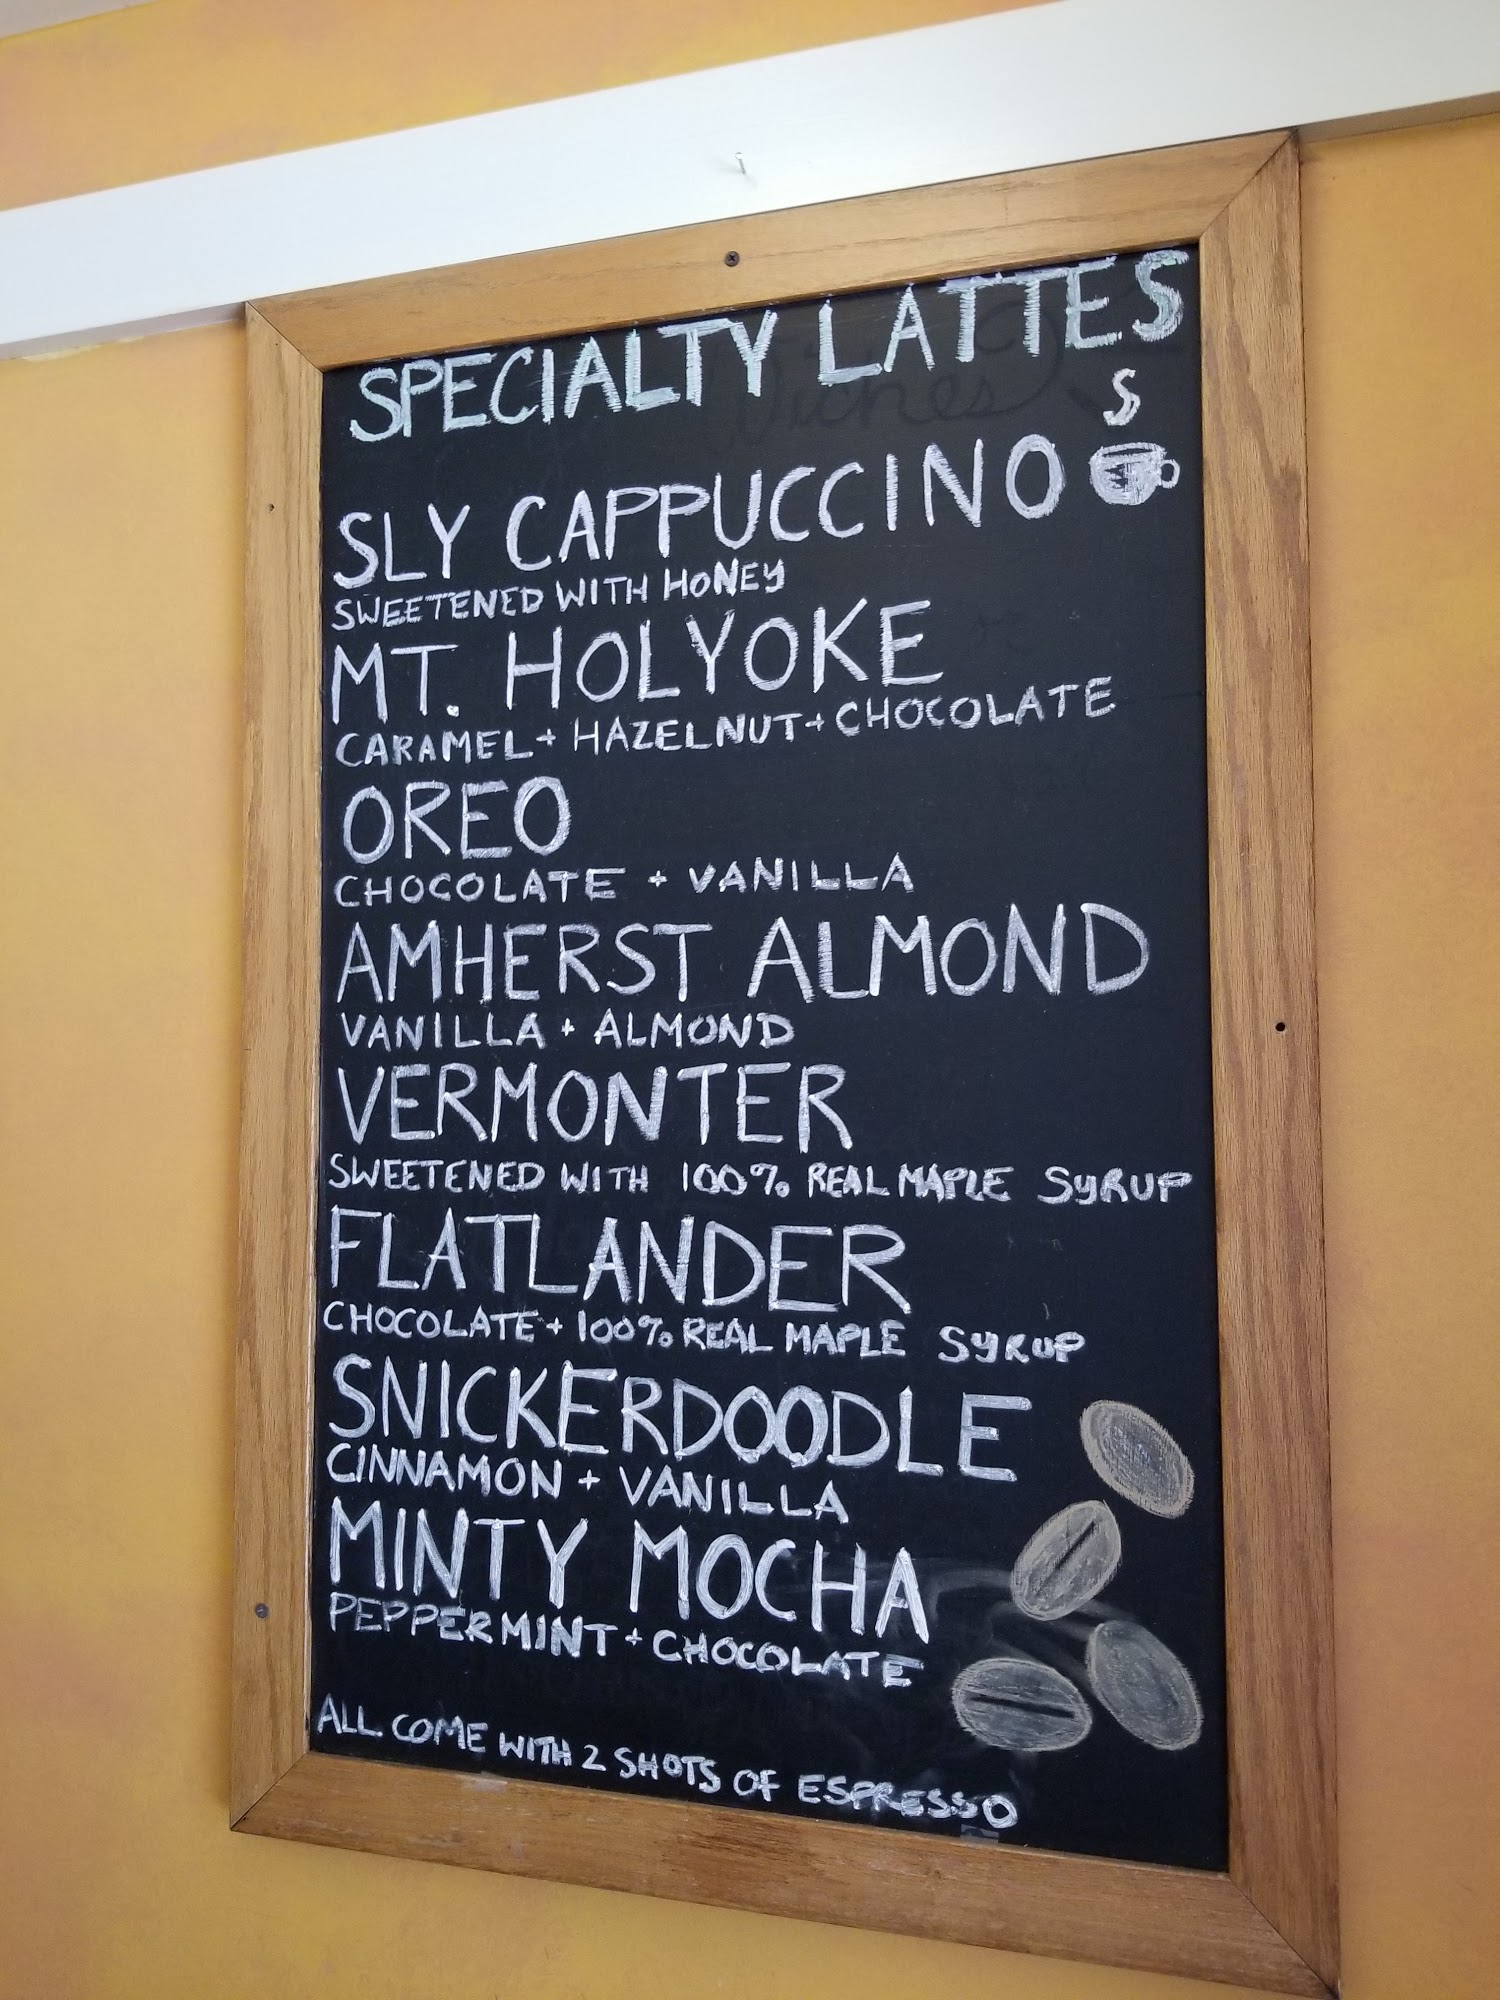 SPECIALTY LATTES
SLY CAPPUCCINO
SWEETENED WITH HONEY
MT. HOLYOKE
CARAMEL + HAZELNUT + CHOCOLATE
OREO
CHOCOLATE + VANILLA
AMHERST ALMOND
VANILLA + ALMOND
VERMONTER
SWEETENED WITH 100% REAL MAPLE SYRUP
FLATLANDER
CHOCOLATE + 100% REAL MAPLE SYRUP
SNICKERDOODLE
CINNAMON + VANILLA
MINTY MOCHA
PEPPERMINT + CHOCOLATE
ALL COME WITH 2 SHOTS OF ESPRESSO